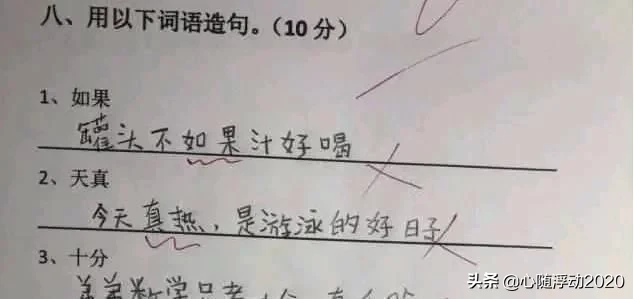 八、用以下词语造句。（10 分）
1、如果
罐头不如果汁好喝
2、天真
今天真热，是游泳的好日子
3、十分
弟弟数学只考十分，真
头条 @心随浮动2020